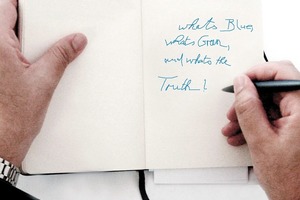 whats Blue,
whats Green,
and whats the
Truth_!